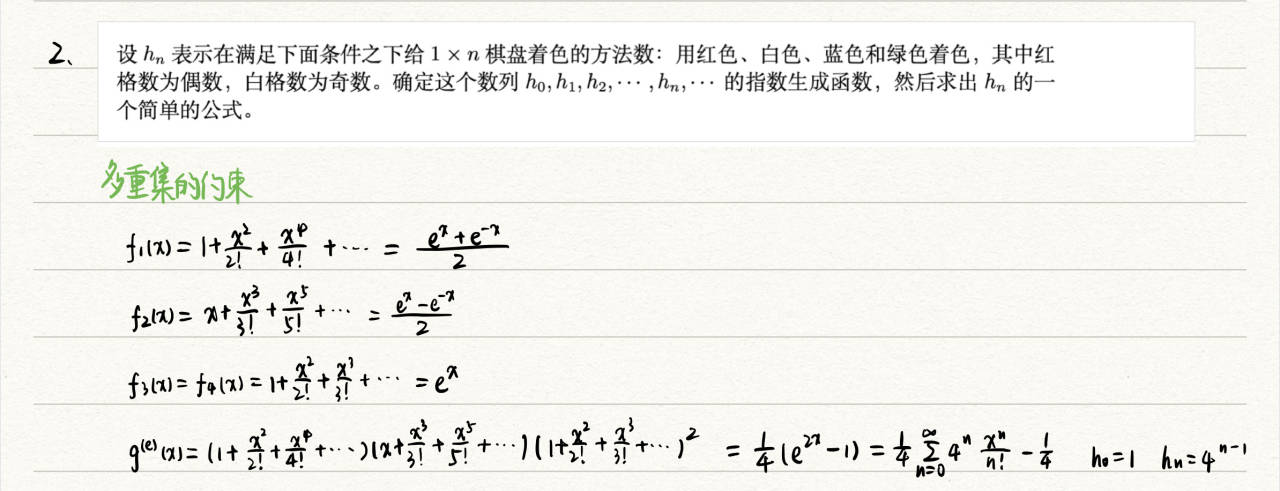 2、
设 hₙ 表示在满足下面条件之下给 1 × n 棋盘着色的方法数：用红色、白色、蓝色和绿色着色，其中红
格数为偶数，白格数为奇数。确定这个数列 h₀, h₁, h₂, ⋯ , hₙ, ⋯ 的指数生成函数，然后求出 hₙ 的一
个简单的公式。
多重集的约束
f₁(x) = 1 + x²/2! + x⁴/4! + ⋯ = (eˣ + e⁻ˣ)/2
f₂(x) = x + x³/3! + x⁵/5! + ⋯ = (eˣ − e⁻ˣ)/2
f₃(x) = f₄(x) = 1 + x²/2! + x³/3! + ⋯ = eˣ
g⁽ᵉ⁾(x) = (1 + x²/2! + x⁴/4! + ⋯)(x + x³/3! + x⁵/5! + ⋯)(1 + x²/2! + x³/3! + ⋯)² = 1/4 (e²ˣ − 1) = 1/4 ∑_{n=0}^{∞} 4ⁿ xⁿ/n! − 1/4 h₀ = 1 hₙ = 4ⁿ⁻¹